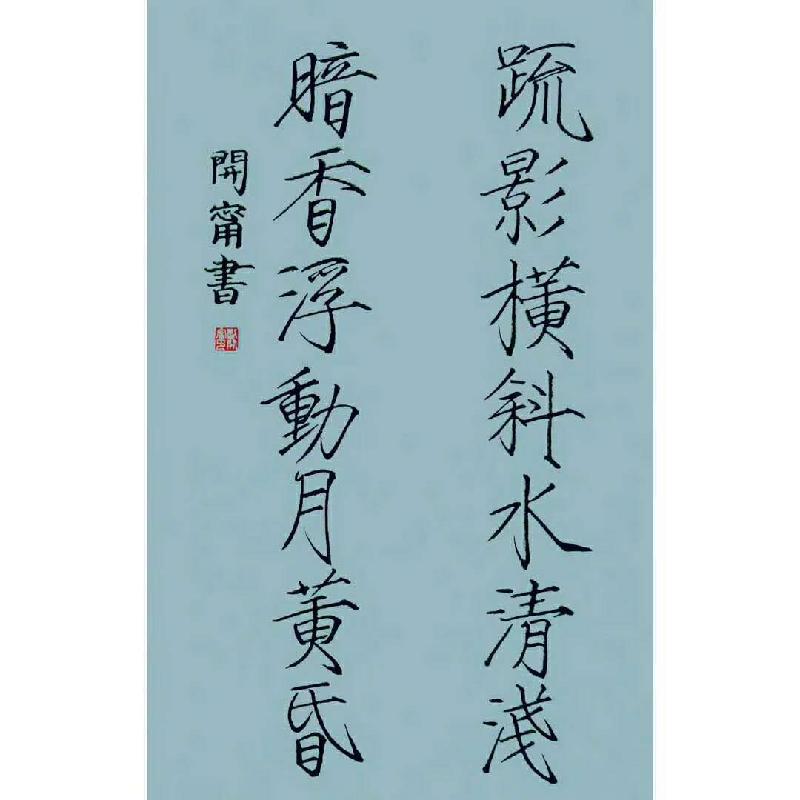 疏影橫斜水清淺
暗香浮動月黃昏
開甯書